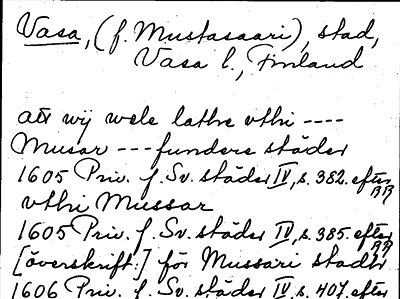 Vasa, (f. Mustasaari), stad,
Vasa l., Finland
att wij wele lathe vthi ----
Musar --- fundere städer
1605 Priv. f. Sv. städer IV, s. 382. efter RR
vthi Mussar
1605 Priv. f. Sv. städer IV, s. 385. efter RR
[överskrift:] för Mussari stadh
1606 Priv. f. Sv. städer IV s. 407. efter